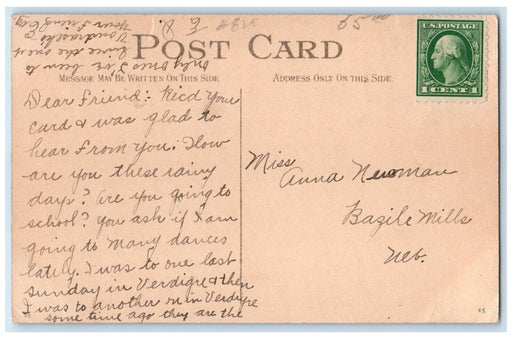 #829
5.00
U.S. POSTAGE
1 CENT 1
POST CARD
MESSAGE MAY BE WRITTEN ON THIS SIDE
ADDRESS ONLY ON THIS SIDE.
Dear Friend: Recd your
card & was glad to
hear from you. How
are you these rainy
days? Are you going to
school? You ask if I am
going to many dances
lately. I was to one last
sunday in Verdigre & then
I was to another in Verdigre
some time ago they are the
only ones I've been to
since the one at
your friend
Miss
Anna Newman
Bazile Mills
Neb.